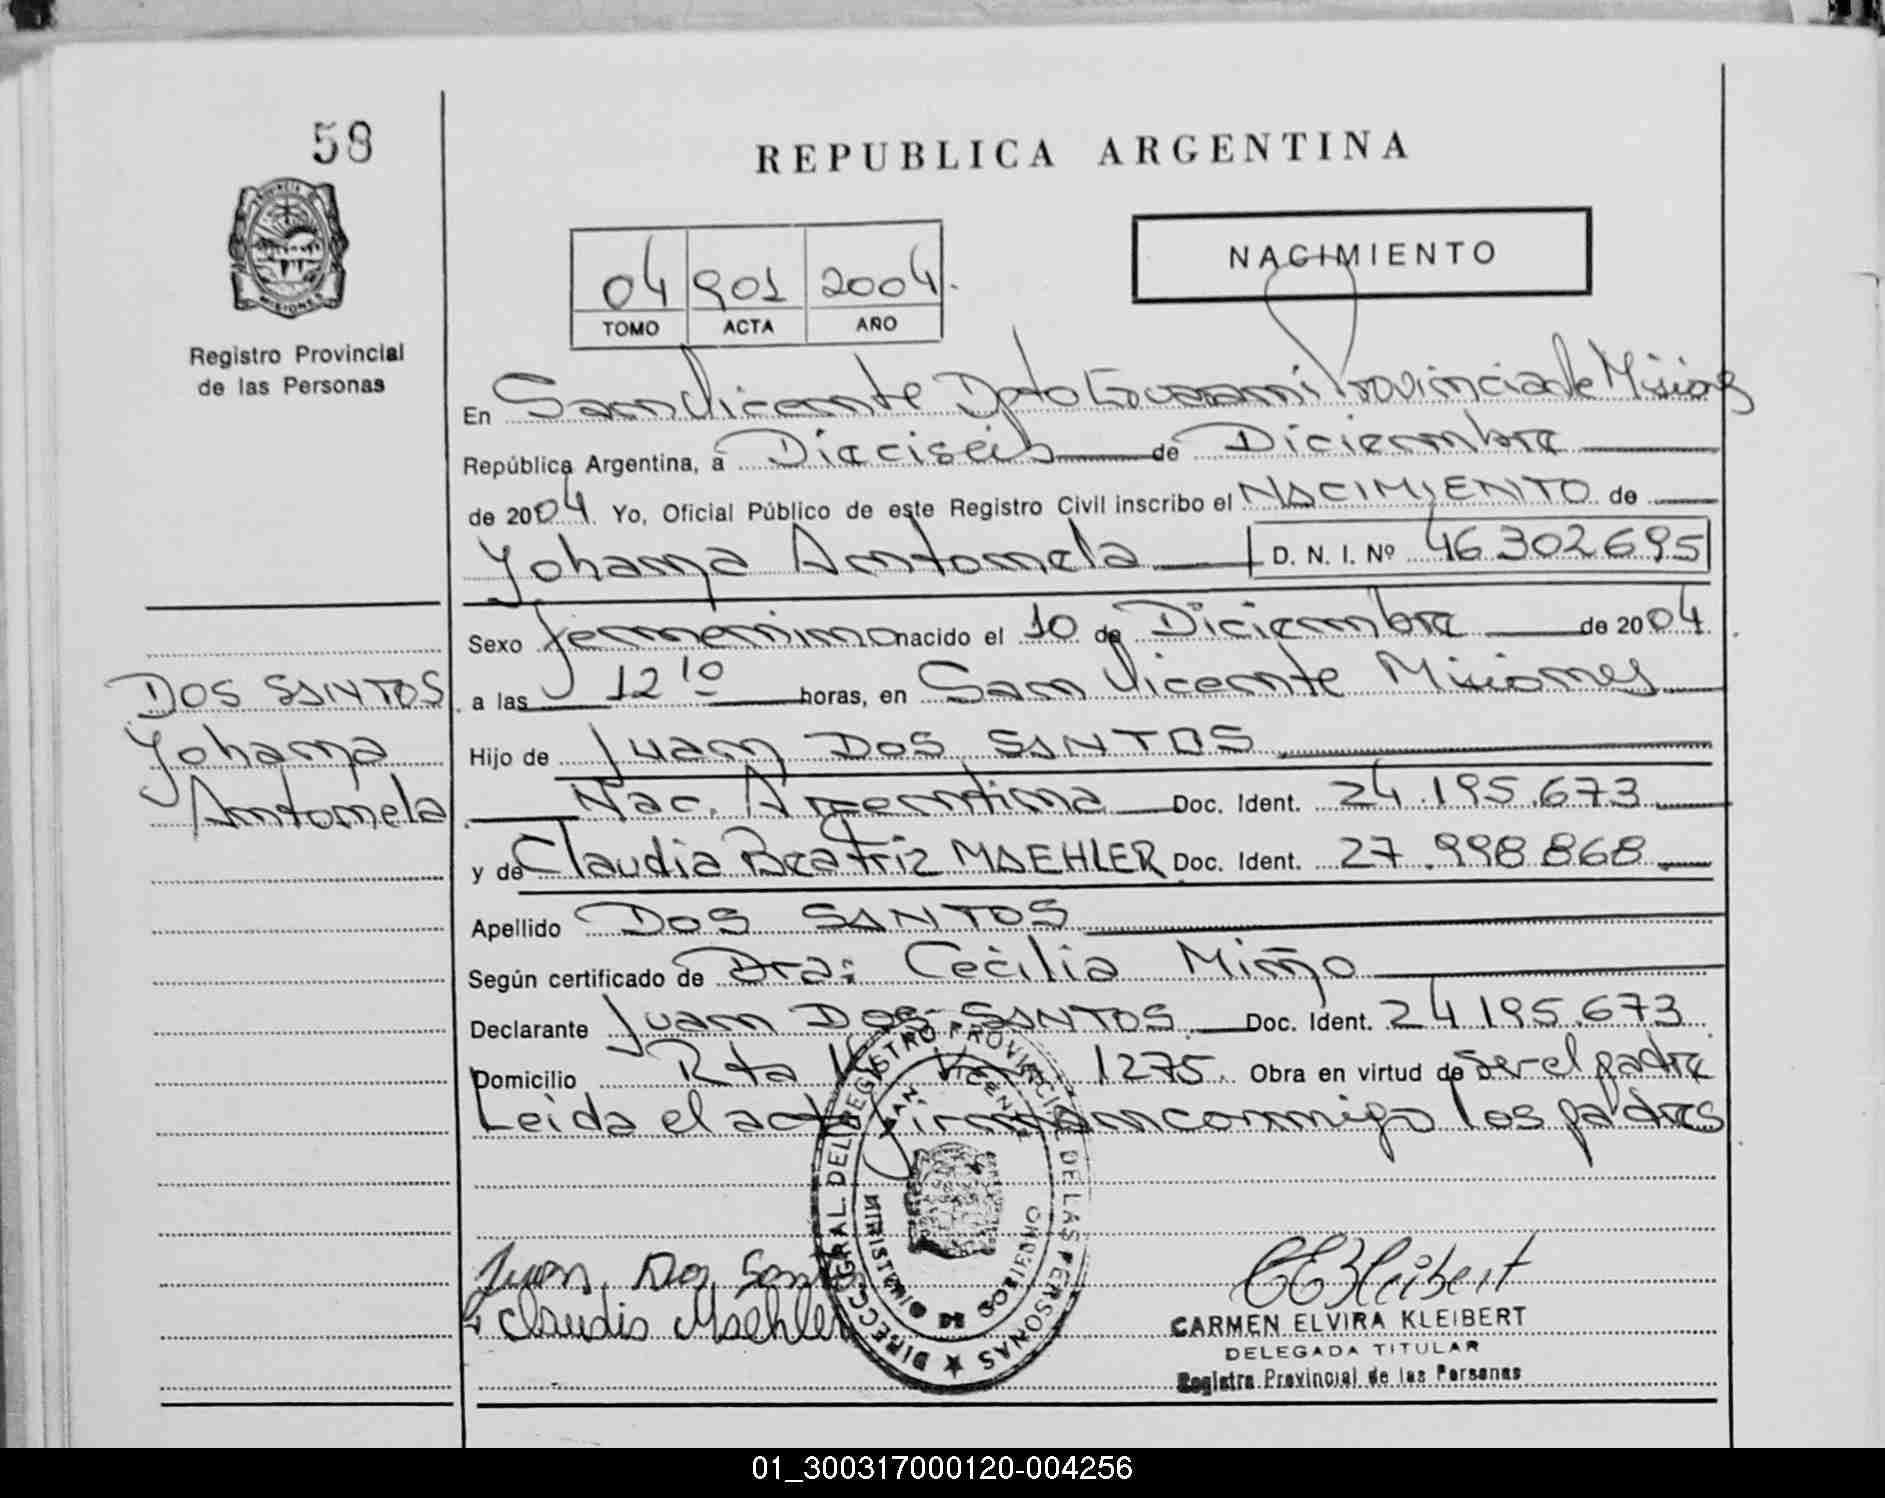 58
REPUBLICA ARGENTINA
04 901 2004
TOMO ACTA AÑO
NACIMIENTO
Registro Provincial
de las Personas
En San Vicente Dpto Guarani Provincia de Misiones
República Argentina, a Dieciséis de Diciembre
de 2004. Yo, Oficial Público de este Registro Civil inscribo el NACIMIENTO de
Yohana Antonela D. N. I. Nº 46.302.695
Sexo femenino nacido el 10 de Diciembre de 2004.
a las 12 10 horas, en San Vicente Misiones
DOS SANTOS
Yohana
Antonela
Hijo de Juan DOS SANTOS
Nac. Argentina Doc. Ident. 24.195.673
y de Claudia Beatriz MAEHLER Doc. Ident. 27.998.868
Apellido DOS SANTOS
Según certificado de Dra: Cecilia Miño
Declarante Juan DOS SANTOS Doc. Ident. 24.195.673
Domicilio Rta 1275. Obra en virtud de ser el padre
Leida el acta firman conmigo los padres
DIRECC. GRAL. DEL REGISTRO PROVINCIAL DE LAS PERSONAS
SAN VICENTE
MINISTERIO DE GOBIERNO
Juan Dos Santos
Claudia Maehler
CEKleibert
CARMEN ELVIRA KLEIBERT
DELEGADA TITULAR
Registro Provincial de las Personas
01_300317000120-004256